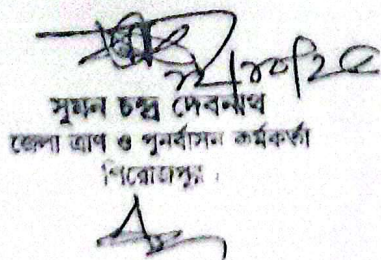 সুমন চন্দ্র দেবনাথ
জেলা ত্রাণ ও পুনর্বাসন কর্মকর্তা
পিরোজপুর।